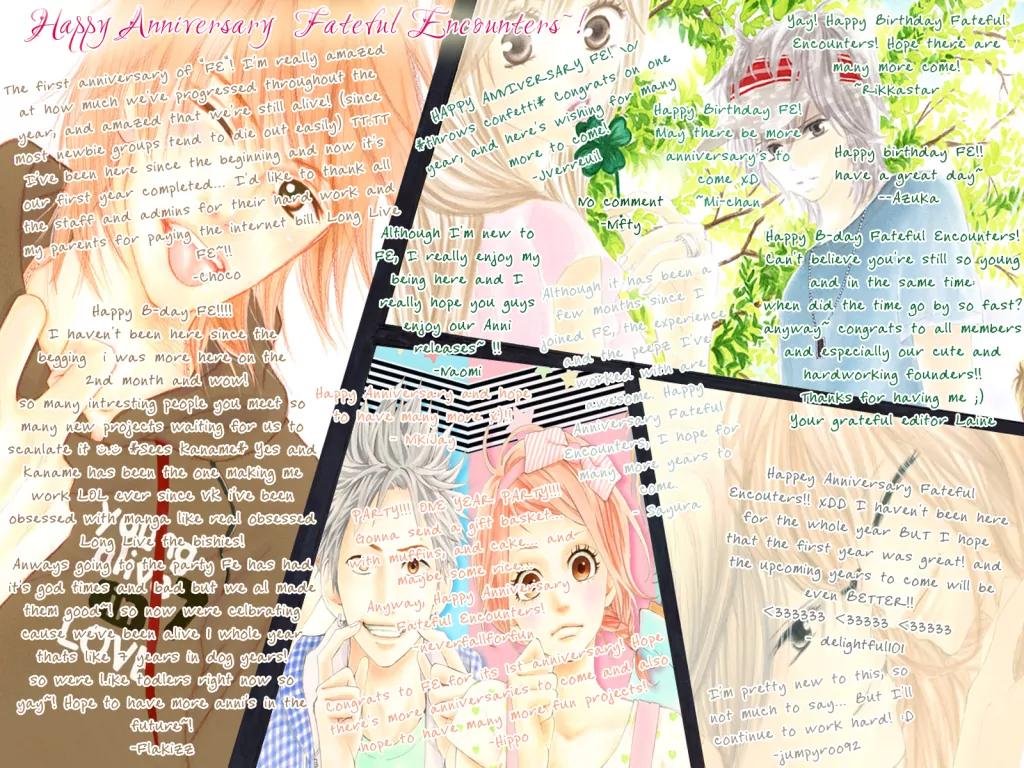 Happy Anniversary Fateful Encounters~!
The first anniversary of "FE"! I'm really amazed
at how much we've progressed throughout the
year, and amazed that we're still alive! (since
most newbie groups tend to die out easily) TT.TT
I've been here since the beginning and now it's
our first year completed... I'd like to thank all
the staff and admins for their hard work and
my parents for paying the internet bill. Long Live
FE~!!
-Choco
Happy B-day FE!!!!
I haven't been here since the
begging i was more here on the
2nd month and wow!
so many intresting people you meet so
many new projects waiting for us to
scanlate it *Sees Kaname* Yes and
Kaname has been the one making me
work LOL ever since vk i've been
obsessed with manga like real obsessed
Long Live the bishies!
Anways going to the party Fe has had
it's god times and bad but we al made
them good~! so now were celebrating
cause we've been alive 1 whole year
thats like years in dog years!
so were like todlers right now so
yay~! Hope to have more anni's in the
future~!
-Flakizz
HAPPY ANNIVERSARY FE! \o/
*throws confetti* Congrats on one
year, and here's wishing for many
more to come!
-Jverreuil
No comment
-Nifty
Although I'm new to
FE, I really enjoy my
being here and I
really hope you guys
enjoy our Anni
releases~ !!
-Naomi
Happy Birthday FE!
May there be more
anniversary's to
come xD
~Mi-chan
Yay! Happy Birthday Fateful
Encounters! Hope there are
many more come!
~RikKastar
Happy birthday FE!!
have a great day~
--Azuka
Happy B-day Fateful Encounters!
Can't believe you're still so young
and in the same time:
when did the time go by so fast?
anyway~ congrats to all members
and especially our cute and
hardworking founders!!
Thanks for having me ;)
Your grateful editor Laine
Although it has been a
few months since I
joined FE, the experience
and the peepz I've
worked with are
awesome. Happy
Anniversary Fateful
Encounters, I hope for
many more years to
come.
- Sayura
Happy Anniversary and hope
to have many more
- MKiJay
PARTY!!!! ONE YEAR PARTY!!!!
Gonna send a gift basket...
with muffins, and cake... and
maybe some rice...
Anyway, Happy Anniversary
Fateful Encounters!
-neverfallforfun
Congrats to FE for its 1st anniversary! Hope
there's more anniversaries to come and also
hope to have many more fun projects!
-Hippo
Happey Anniversary Fateful
Encouters!! XDD I haven't been here
for the whole year BUT I hope
that the first year was great! and
the upcoming years to come will be
even BETTER!!
<333333 <33333 <33333
- delightful101
I'm pretty new to this, so
not much to say... But I'll
continue to work hard! :D
-jumpyroo92